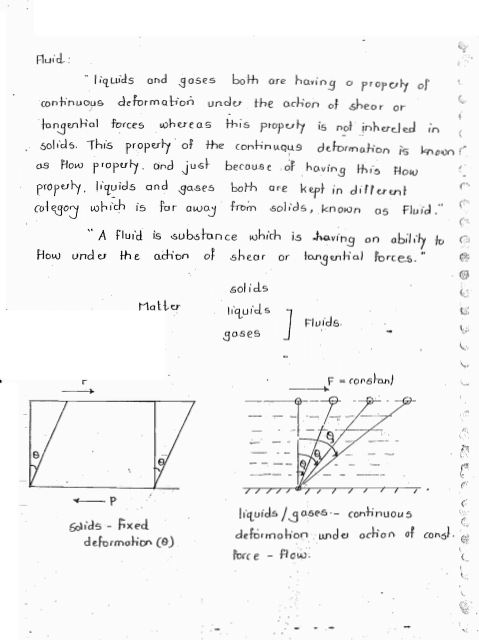 Fluid:
"liquids and gases both are having a property of
continuous deformation under the action of shear or
tangential forces whereas this property is not inhereled in
solids. This property of the continuous deformation is known
as flow property. and just because of having this flow
property, liquids and gases both are kept in different
category which is far away from solids, known as Fluid."
"A fluid is substance which is having an ability to
flow under the action of shear or tangential forces."
solids
Matter liquids
gases
Fluids.
F = constant
θ θ
θ θ θ
P
solids - fixed
deformation (θ)
liquids/gases - continuous
deformation under action of const.
force - flow.